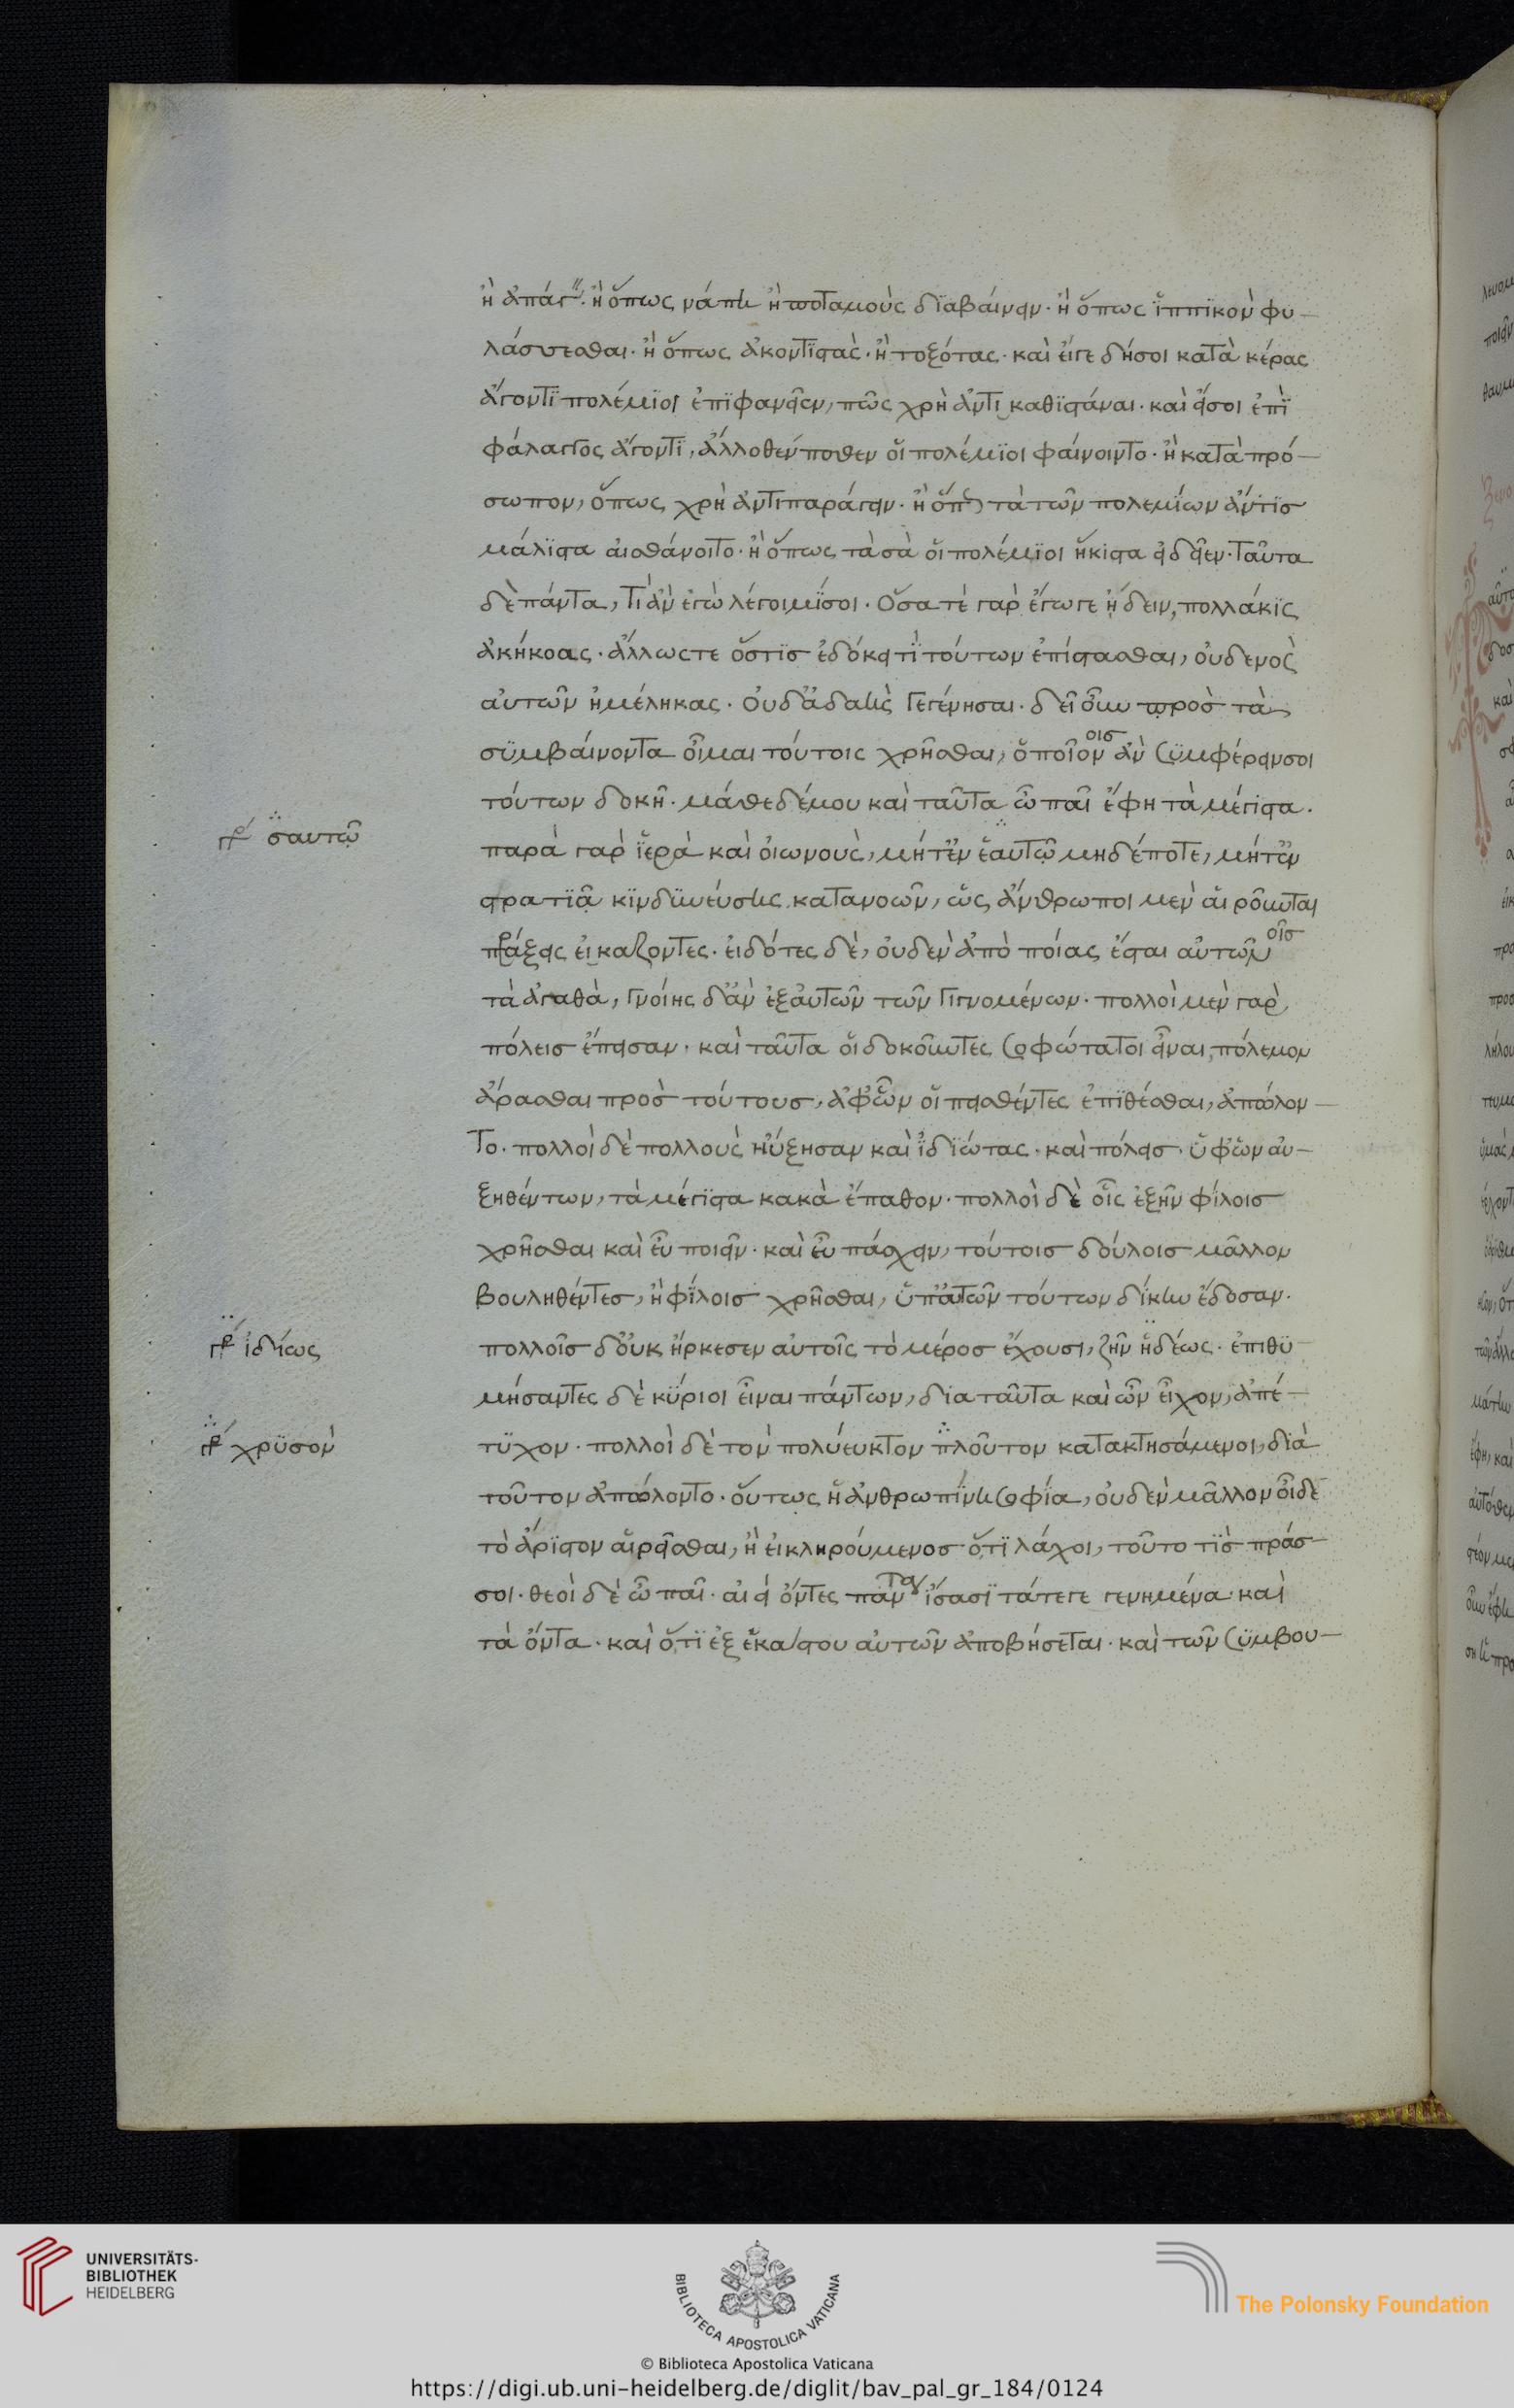 ἢ ἀπάγειν· ἢ ὅπως νάπη ἢ ποταμοὺς διαβαίνειν· ἢ ὅπως ἱππικὸν φυ-
λάσσεσθαι· ἢ ὅπως ἀκοντιστάς· ἢ τοξότας· καὶ εἴγε δή σοι κατὰ κέρας
ἄγοντι πολέμιοι ἐπιφανεῖεν, πῶς χρὴ ἀντικαθιστάναι· καὶ εἴ σοι ἐπὶ
φάλαγγος ἄγοντι, ἄλλοθέν ποθεν οἱ πολέμιοι φαίνοιντο· ἢ κατὰ πρό-
σωπον, ὅπως χρὴ ἀντιπαράγειν· ἢ ὅπως τὰ τῶν πολεμίων ἄν τις
μάλιστα αἰσθάνοιτο· ἢ ὅπως τὰ σὰ οἱ πολέμιοι ἥκιστα εἰδεῖεν· ταῦτα
δὲ πάντα, τί ἂν ἐγὼ λέγοιμί σοι· ὅσα τὲ γὰρ ἔγωγε ᾔδειν, πολλάκις
ἀκήκοας· ἄλλωςτε ὅστις ἐδόκει τὶ τούτων ἐπίστασθαι, οὐδενὸς
αὐτῶν ἠμέληκας· οὐδ' ἀδαὴς γεγένησαι· δεῖ οὖν πρὸς τὰ
συμβαίνοντα οἶμαι τούτοις χρῆσθαι, ὁποῖον οις ἂν συμφέρειν σοι
τούτων δοκῇ· μάθε δέ μου καὶ ταῦτα ὦ παῖ ἔφη τὰ μέγιστα·
γρ σαυτῷ
παρὰ γὰρ ἱερὰ καὶ οἰωνοὺς, μήτ' ἐν ἑαυτῷ μηδέποτε, μήτ' ἐν
στρατιᾷ κινδυνεύσῃς κατανοῶν, ὡς ἄνθρωποι μὲν αἱροῦνται
πράξεις εἰκάζοντες· εἰδότες δὲ, οὐδὲν ἀπὸ ποίας ἔσται αὐτῶν οῖσ
τὰ ἀγαθὰ, γνοίης δ' ἂν ἐξ αὐτῶν τῶν γιγνομένων· πολλοὶ μὲν γὰρ
πόλεις ἔπεισαν· καὶ ταῦτα οἱ δοκοῦντες σοφώτατοι εἶναι, πόλεμον
ἄρασθαι πρὸς τούτους, ἀφ' ὧν οἱ πεισθέντες ἐπιθέσθαι, ἀπώλον-
το· πολλοὶ δὲ πολλοὺς ηὔξησαν καὶ ἰδιώτας· καὶ πόλεις· ὑφ' ὧν αὐ-
ξηθέντων, τὰ μέγιστα κακὰ ἔπαθον· πολλοὶ δὲ οἷς ἐξῆν φίλοις
χρῆσθαι καὶ εὖ ποιεῖν· καὶ εὖ πάσχειν, τούτοις δούλοις μᾶλλον
βουληθέντες, ἢ φίλοις χρῆσθαι, ὑπ' αὐτῶν τούτων δίκην ἔδοσαν·
γρ ἰδίως
πολλοῖς δ' οὐκ ἤρκεσεν αὐτοῖς τὸ μέρος ἔχουσι, ζῆν ἡδέως· ἐπιθυ-
μήσαντες δὲ κύριοι εἶναι πάντων, δια ταῦτα καὶ ὧν εἶχον, ἀπέ-
γρ χρυσὸν
τυχον· πολλοὶ δὲ τὸν πολύευκτον πλοῦτον κατακτησάμενοι, διὰ
τοῦτον ἀπώλοντο· οὕτως ἡ ἀνθρωπίνη σοφία, οὐδὲν μᾶλλον οἶδε
τὸ ἄριστον αἱρεῖσθαι, ἢ εἰ κληρούμενος ὅτι λάχοι, τοῦτο τὶς πράσ-
σοι· θεοὶ δὲ ὦ παῖ· αἰεὶ ὄντες πάντα ἴσασι τά τε γεγενημένα· καὶ
τὰ ὄντα· καὶ ὅτι ἐξ ἑκάστου αὐτῶν ἀποβήσεται· καὶ τῶν συμβου-
UNIVERSITÄTS-
BIBLIOTHEK
HEIDELBERG
BIBLIOTECA APOSTOLICA VATICANA
The Polonsky Foundation
© Biblioteca Apostolica Vaticana
https://digi.ub.uni-heidelberg.de/diglit/bav_pal_gr_184/0124